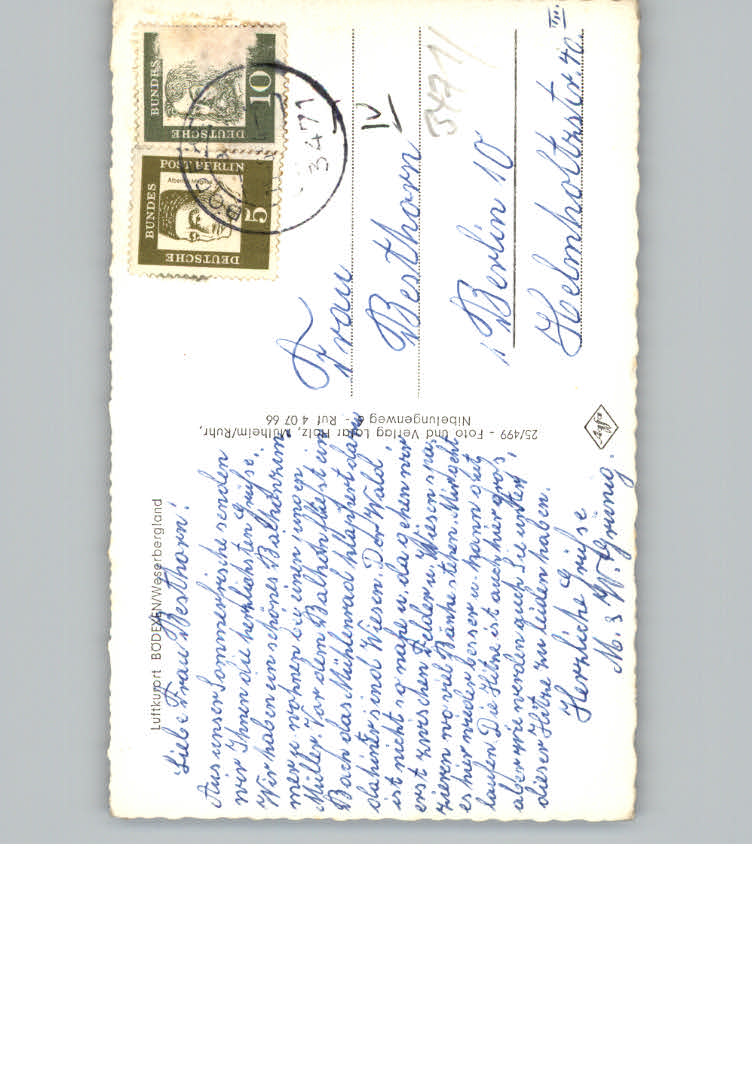 Luftkurort BÖDEXEN/Weserbergland
Liebe Frau Besthorn!
Aus unser Sommerfrische senden
wir Ihnen die herzlichsten Grüße.
Wir haben ein schönes Balkonzim-
mer u. wohnen bei einen jungen
Müller. Vor dem Balkon fließt ein
Bach das Mühlenrad klappert dazu
dahinter sind Wiesen. Der Wald
ist nicht so nahe u. da gehen wir
erst zwischen Felder u. Wiesen spa-
zieren wo viel Bänke stehen. Mir geht
es hier wieder besser u. kann gut
laufen. Die Hitze ist auch hier groß,
aber wie werden auch Sie unter
dieser Hitze zu leiden haben.
Herzliche Grüße
M. & W. Grünig.
25/499 - Foto und Verlag Lothar Holz, Mülheim/Ruhr,
Nibelungenweg - Ruf 4 07 66
Agfa
DEUTSCHE
BUNDES
10
DEUTSCHE
BUNDES
POST BERLIN
5
3471
IV
3471/
Frau
Besthorn
1 Berlin 10
Helmholtzstr. 40.
III.